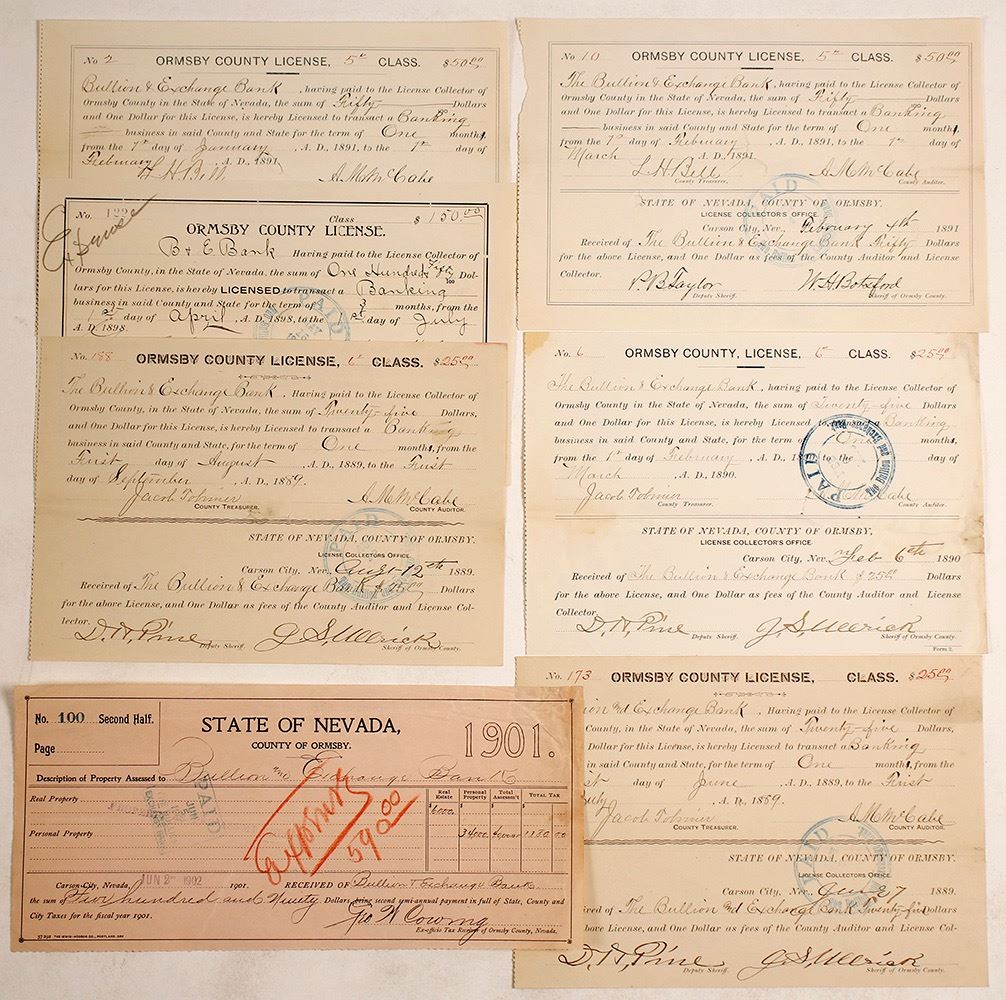 No 2 ORMSBY COUNTY LICENSE, 5th CLASS. $50.00
Bullion & Exchange Bank, having paid to the License Collector of
Ormsby County in the State of Nevada, the sum of Fifty Dollars
and One Dollar for this License, is hereby Licensed to transact a Banking
business in said County and State for the term of One months,
from the 7th day of January, A. D., 1891, to the 7th day of
February, A. D., 1891
L H Bell A M McCabe
No 10 ORMSBY COUNTY LICENSE, 5th CLASS. $50.00
The Bullion & Exchange Bank, having paid to the License Collector of
Ormsby County in the State of Nevada, the sum of Fifty Dollars
and One Dollar for this License, is hereby Licensed to transact a Banking
business in said County and State for the term of One months,
from the 7th day of February, A. D., 1891, to the 7th day of
March, A. D., 1891
L. H. Bell A M McCabe
County Treasurer. County Auditor.
STATE OF NEVADA, COUNTY OF ORMSBY.
LICENSE COLLECTOR'S OFFICE.
Carson City, Nev., February 4th 1891
Received of The Bullion & Exchange Bank Fifty Dollars
for the above License, and One Dollar as fees of the County Auditor and License
Collector.
P. B Taylor W. H Botsford
Deputy Sheriff. Sheriff of Ormsby County.
PAID
No. Class $150.00
ORMSBY COUNTY LICENSE.
B & E Bank Having paid to the License Collector of
Ormsby County, in the State of Nevada, the sum of One Hundred & Fifty Dol-
lars for this License, is hereby LICENSED to transact a Banking
business in said County and State for the term of 3 months, from the
1st day of April, A. D. 1898, to the 1st day of July
A. D. 1898.
PAID
No. 188 ORMSBY COUNTY LICENSE, 6th CLASS. $25.00
The Bullion & Exchange Bank, Having paid to the License Collector of
Ormsby County, in the State of Nevada, the sum of Twenty-five Dollars,
and One Dollar for this License, is hereby Licensed to transact a Banking
business in said County and State, for the term of One months, from the
First day of August, A. D., 1889, to the First
day of September, A. D., 1889.
Jacob Tobriner A. M. McCabe
COUNTY TREASURER. COUNTY AUDITOR.
STATE OF NEVADA, COUNTY OF ORMSBY,
LICENSE COLLECTORS OFFICE.
Carson City, Nev., Aug 12th 1889.
Received of The Bullion & Exchange Bank $25.00 Dollars
for the above License, and One Dollar as fees of the County Auditor and License Col-
lector.
D. H. Pine J. S. Ullerick
Deputy Sheriff. Sheriff of Ormsby County.
PAID
No. 6 ORMSBY COUNTY, LICENSE, 6th CLASS. $25.00
The Bullion & Exchange Bank, having paid to the License Collector of
Ormsby County, in the State of Nevada, the sum of Twenty-five Dollars,
and One Dollar for this License, is hereby Licensed to transact a Banking
business in said County and State, for the term of One months,
from the 1st day of February, A. D., to the day of
March, A. D., 1890.
Jacob Tobriner A M McCabe
County Treasurer. County Auditor.
PAID
STATE OF NEVADA, COUNTY OF ORMSBY,
LICENSE COLLECTORS OFFICE
Carson City, Nev Feb 6th 1890
Received of The Bullion & Exchange Bank $25.00 Dollars
for the above License, and One Dollar as fees of the County Auditor and License
Collector.
D. H. Pine J. S. Ullerick
Deputy Sheriff. Sheriff of Ormsby County.
Form 2.
No. 100 Second Half.
Page
STATE OF NEVADA,
COUNTY OF ORMSBY.
1901.
Description of Property Assessed to Bullion and Exchange Bank
Real Estate Personal Property Total Assessm't TOTAL TAX
Real Property 6000
Personal Property 34000 40000 1180 00
590.00
PAID
Carson City, Nevada, JUN 2 1902 1901. RECEIVED OF Bullion & Exchange Bank
the sum of Five hundred and Ninety Dollars being second semi-annual payment in full of State, County and
City Taxes for the fiscal year 1901.
Geo W Cowing
Ex-officio Tax Receiver of Ormsby County, Nevada.
No. 173 ORMSBY COUNTY LICENSE, CLASS. $25.00
ion and Exchange Bank, Having paid to the License Collector of
County, in the State of Nevada, the sum of Twenty-five Dollars,
Dollar for this License, is hereby Licensed to transact a Banking
in said County and State, for the term of One months, from the
day of June, A. D., 1889, to the First
July, A. D., 1889.
Jacob Tobriner A. M. McCabe
COUNTY TREASURER. COUNTY AUDITOR.
STATE OF NEVADA, COUNTY OF ORMSBY.
LICENSE COLLECTORS OFFICE.
Carson City, Nev., Jun 27 1889.
ived of The Bullion and Exchange Bank Twenty-five Dollars
bove License, and One Dollar as fees of the County Auditor and License Col-
D. H. Pine J. S. Ullerick
Deputy Sheriff. Sheriff of Ormsby County.
PAID